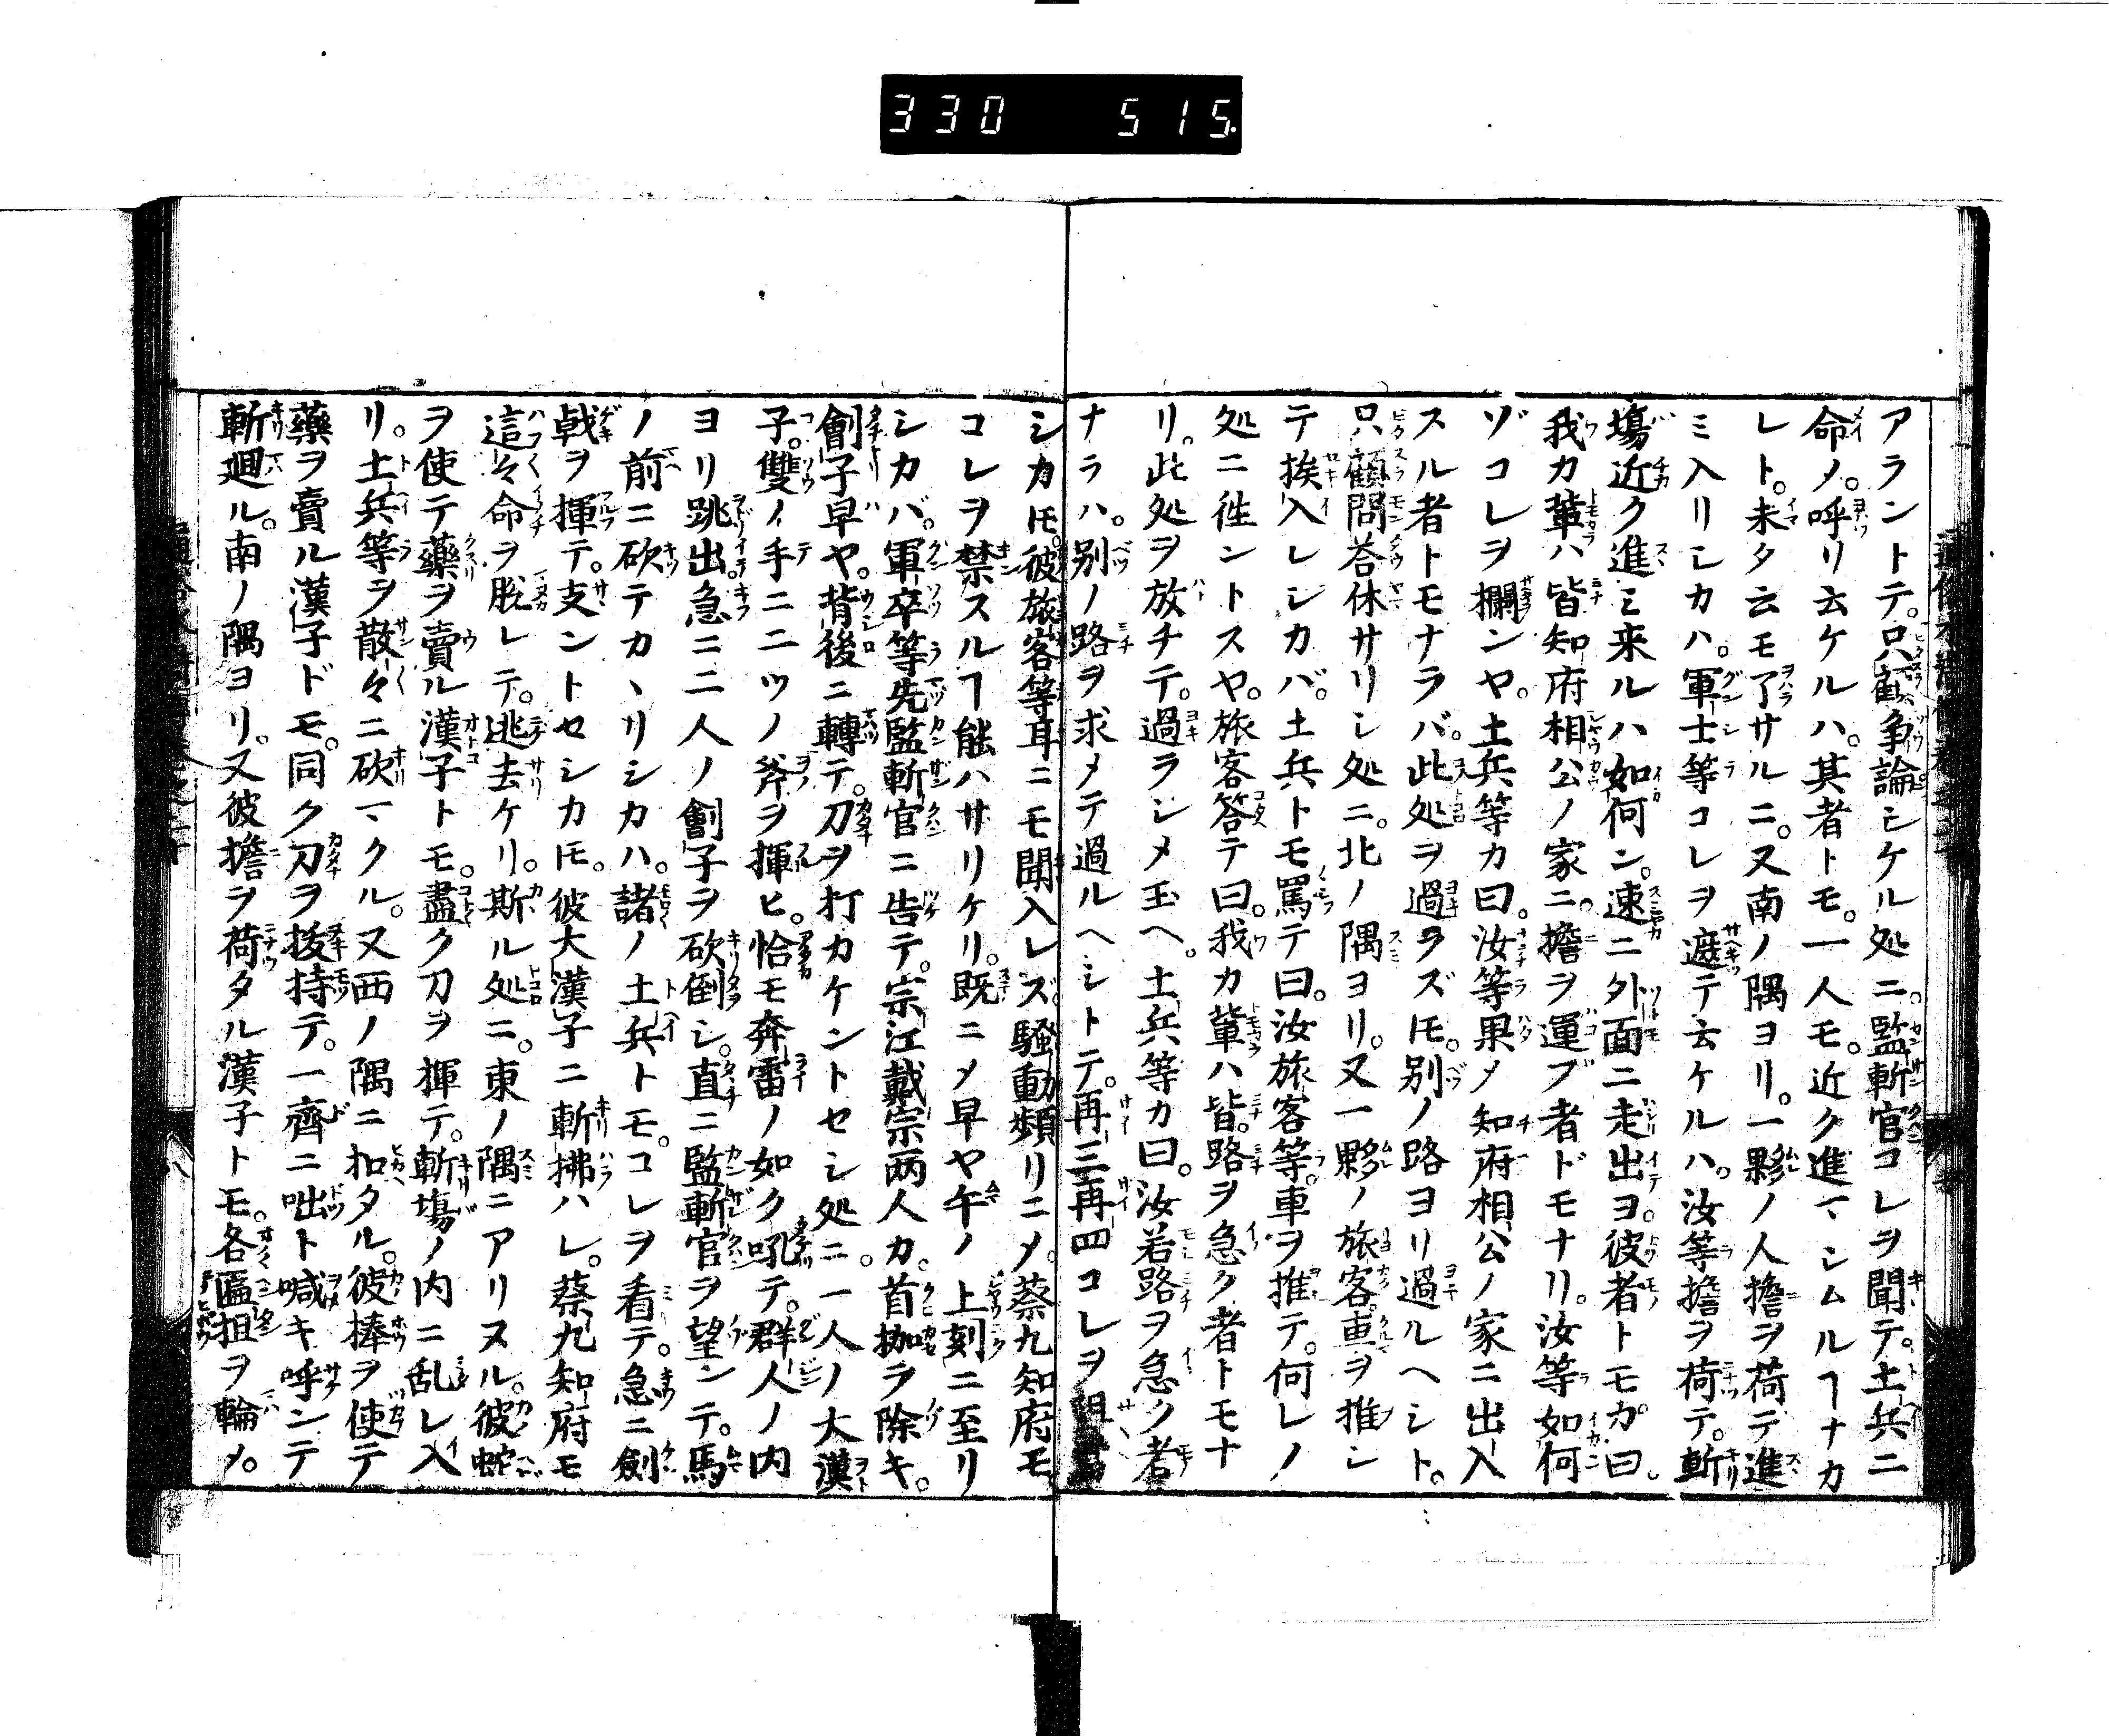 330 515.
アラントテ。只顧争論シケル処ニ。監斬官コレヲ聞テ。土兵ニ
命メ。呼リ云ケルハ。其者トモ。一人モ。近ク進マシムルヿナカ
レト。未タ云モ了サルニ。又南ノ隅ヨリ。一夥ノ人擔ヲ荷テ進
ミ入リシカハ。軍士等コレヲ遮テ云ケルハ。汝等擔ヲ荷テ。斬
塲近ク進ミ来ルハ如何ン。速ニ外面ニ走出ヨ。彼者トモカ曰。
我カ輩ハ皆知府相公ノ家ニ。擔ヲ運ブ者ドモナリ。汝等如何
ゾコレヲ攔ンヤ。土兵等カ曰。汝等果メ知府相公ノ家ニ出入
スル者トモナラバ。此処ヲ過ラズトモ。別ノ路ヨリ過ルヘシト。
只顧問荅休サリシ処ニ。北ノ隅ヨリ。又一夥ノ旅客。車ヲ推シ
テ挨入レシカバ。土兵トモ罵テ曰。汝旅客等。車ヲ推テ。何レノ
処ニ徃ントスヤ。旅客答テ曰。我カ輩ハ皆。路ヲ急ク者トモナ
リ。此処ヲ放チテ。過ラシメ玉ヘ。土兵等カ曰。汝若路ヲ急クノ者
ナラハ。別ノ路ヲ求メテ過ルヘシトテ。再三再四コレヲ
シカ𪜈。彼旅客等耳ニモ聞入レズ。騒動頻リニメ。蔡九知府モ
コレヲ禁スルヿ能ハサリケリ。既ニメ早ヤ午ノ上刻ニ至リ
シカバ。軍卒等先監斬官ニ告テ。宗江戴宗两人カ。首枷ラ除キ。
劊子早ヤ。背後ニ轉テ。刀ヲ打カケントセシ処ニ。一人ノ大漢
子。雙ノ手ニ二ツノ斧ヲ揮ヒ。恰モ奔雷ノ如ク吼テ。群人ノ内
ヨリ跳出。急ニ二人ノ劊子ヲ砍倒シ。直ニ監斬官ヲ望ンテ。馬
ノ前ニ砍テカヽリシカハ。諸ノ土兵トモ。コレヲ看テ。急ニ劍
戟ヲ揮テ。支ントセシカ𪜈。彼大漢子ニ斬拂ハレ。蔡九知府モ
這々命ヲ脱レテ。逃去ケリ。斯ル処ニ。東ノ隅ニアリヌル。彼蛇
ヲ使テ藥ヲ賣ル漢子トモ。盡ク刀ヲ揮テ。斬塲ノ内ニ乱レ入
リ。土兵等ヲ散々ニ砍マクル。又西ノ隅ニ扣タル。彼捧ヲ使テ
藥ヲ賣ル漢子ドモ。同ク刀ヲ拔持テ。一齊ニ咄ト喊キ呼ンテ
斬廻ル。南ノ隅ヨリ。又彼擔ヲ荷タル漢子トモ。各匾担ヲ輪メ。